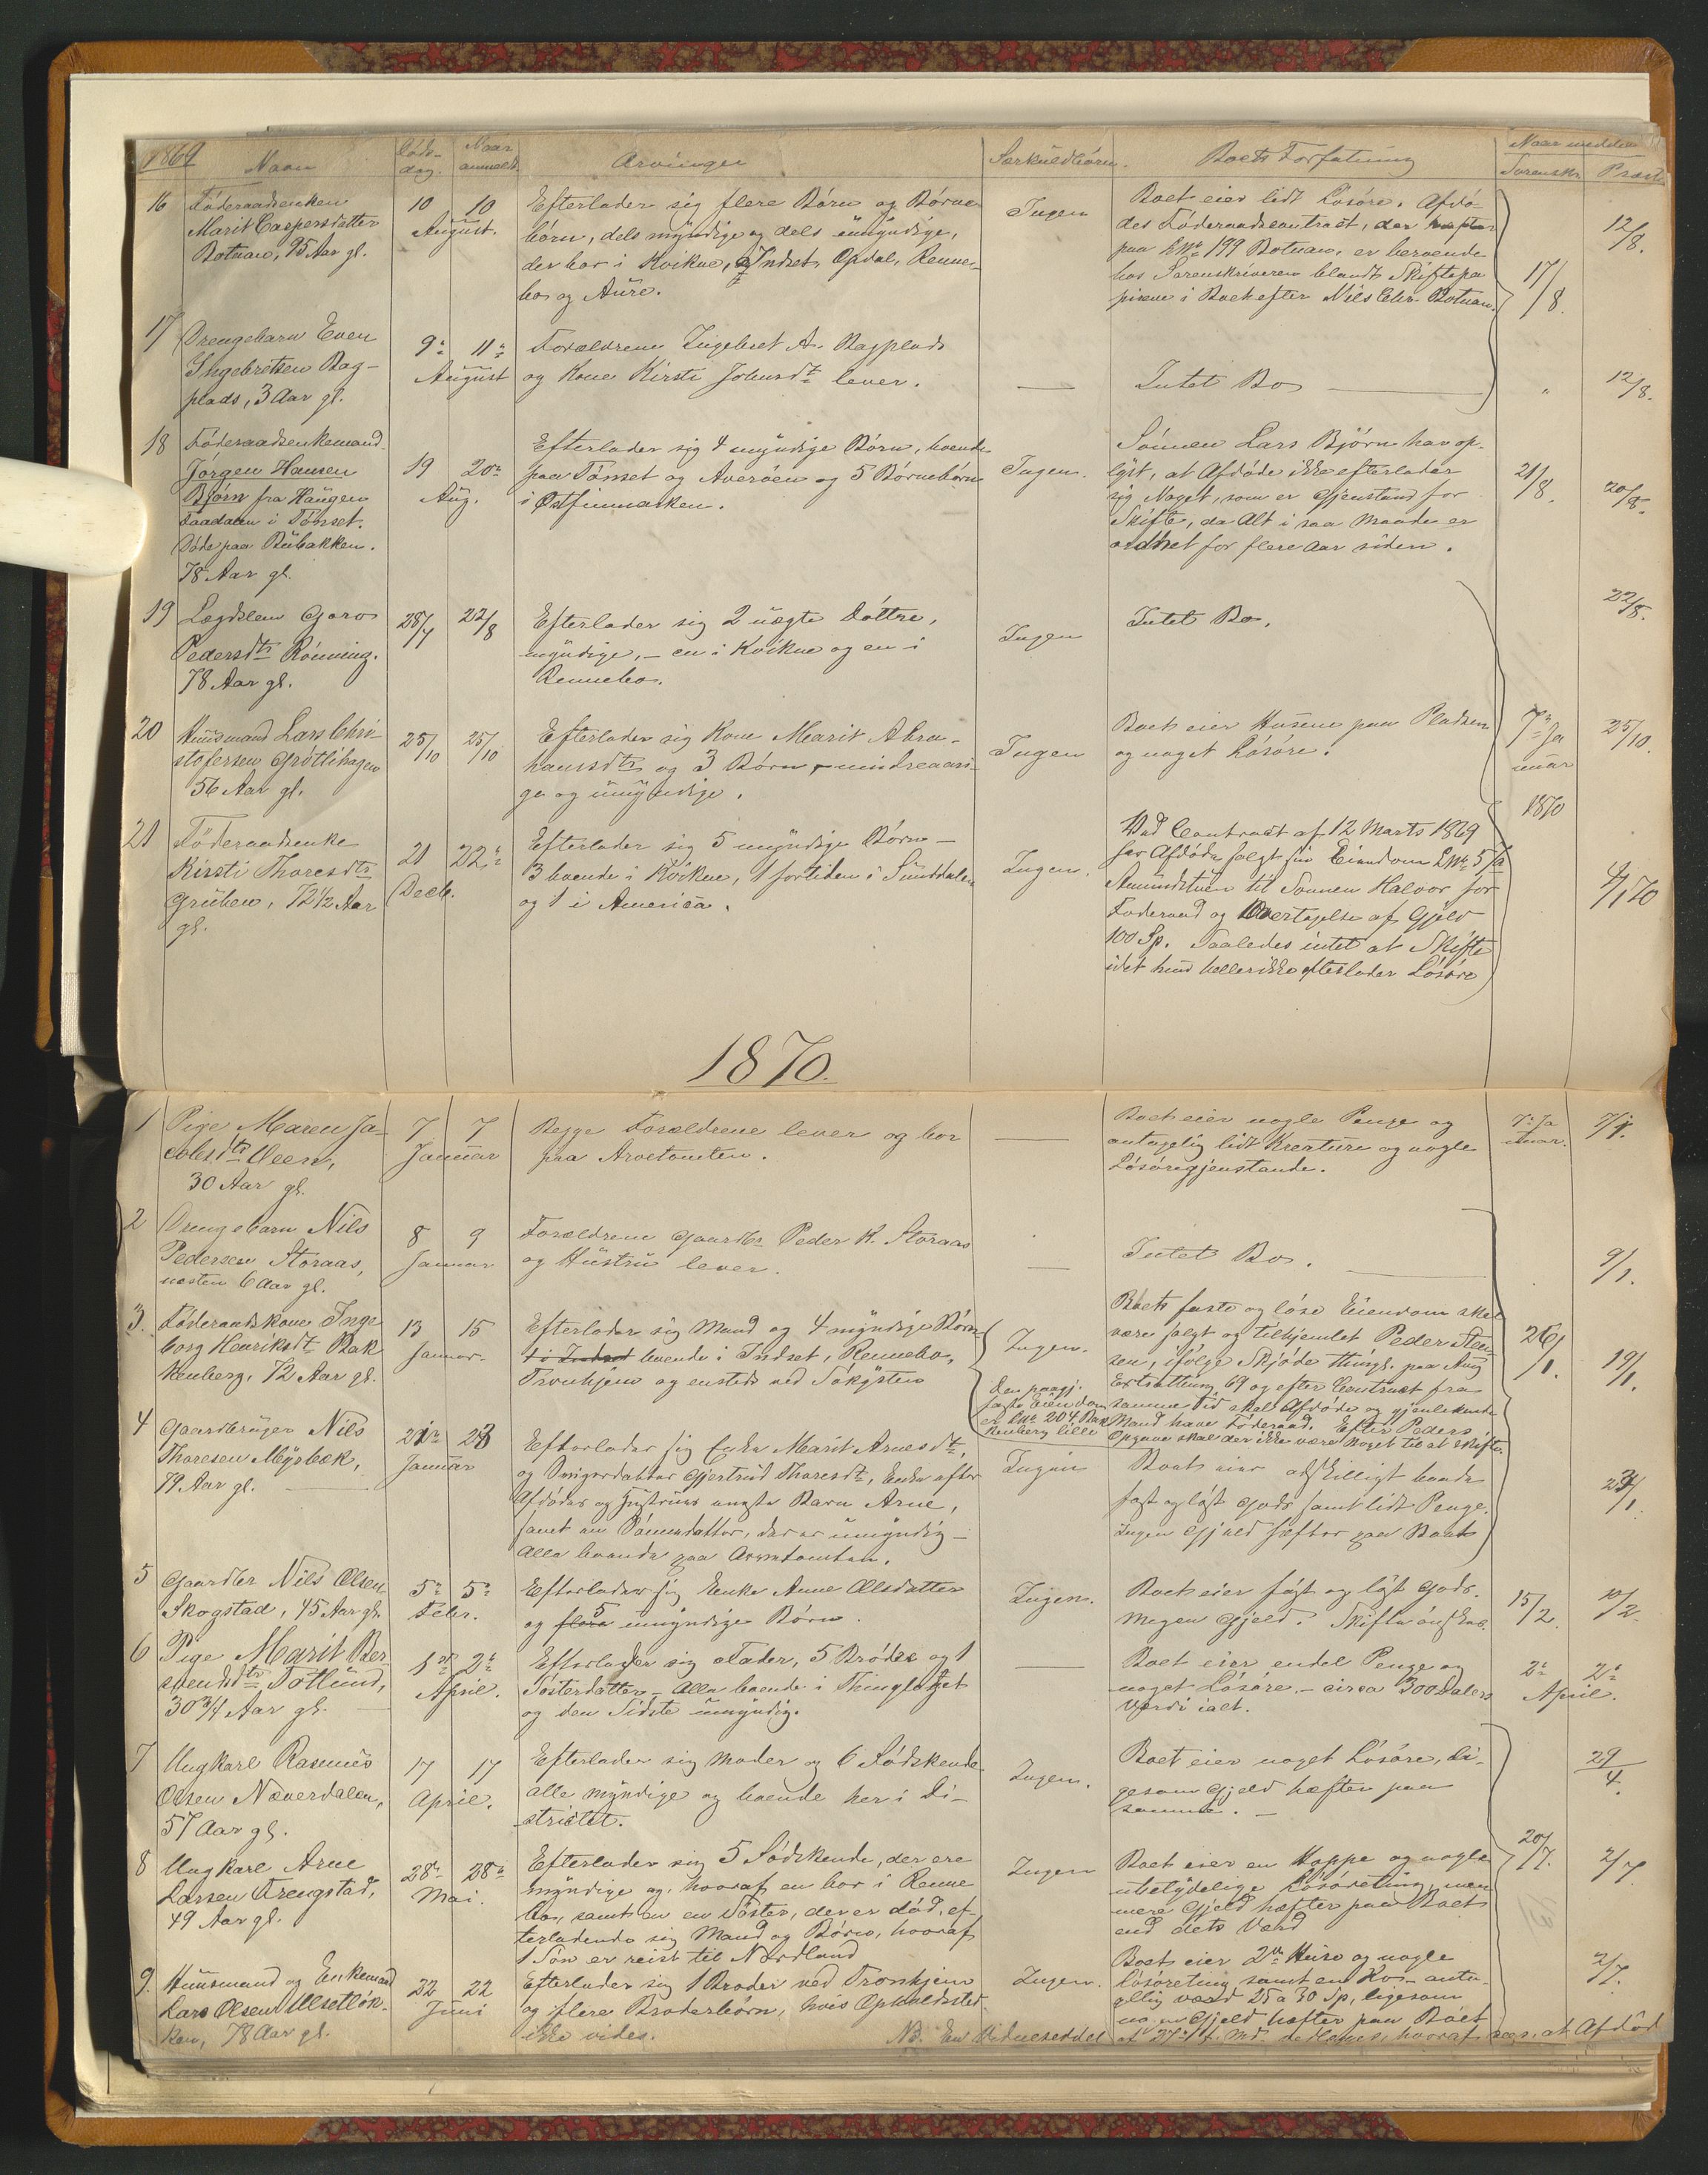 1869
Navn
Døds-
dag.
Naar
anmeldt.
Arvinger
Særkuldbørn.
Boets Forfatning
Naar meddelt
Sorenskr.
Præst
16
Föderaadsenken
Marit Caspersdatter
Botnan, 95 Aar gl.
10 10
August.
Efterlader sig flere Börn og Börne
börn, dels myndige og dels umyndige,
der bor i Kvikne, Indset, Opdal, Renne-
bo og Aure.
Ingen
Boet eier lidt Lösöre. Afdö-
des Föderaadscontract, der
paa L.No 199 Botnan, er beroende
hos Sorenskriveren blandt Skiftepa
pirene i Boet efter Nils Chr. Botnan.
17/8.
12/8.
17
Drengebarn Even
Ingebretsen Bag-
plads, 3 Aar gl.
9de 11te
August
Forældrene Ingebret A. Bagplads
og Kone Kirsti Johnsdtr lever.
—
Intet Bo
"
12/8.
18
Föderaadsenkemand
Jörgen Hansen
Bjórn fra Haugen
Faadalen i Tönset.
Döde paa Bubakken.
78 Aar gl.
19 20de
Aug.
Efterlader sig 4 myndige Börn, boende
paa Tönset og Averöen og 5 Börnebörn
i Østfinmarken.
Ingen.
Sönnen Lars Björn har op-
lyst, at Afdöde ikke efterlader
sig Noget, som er Gjenstand for
Skifte, da Alt i saa Maade er
ordnet for flere Aar siden.
21/8.
20/8.
19
Lægdslem Goro
Pedersdtr Rönning.
78 Aar gl.
28/7
22/8
Efterlader sig 2 uægte Döttre,
myndige, – en i Kvikne og en i
Rennebo.
Ingen
Intet Bo.
22/8.
20
Huusmand Lars Chri
stofersen Gröttlihagen
56 Aar gl.
25/10
25/10
Efterlader sig Kone Marit Abra-
hamsdtr og 3 Börn, mindreaari-
ge og umyndige.
Ingen
Boet eier Husene paa Pladsen
og noget Lösöre.
7de Ja
nuar
1870
25/10.
21
Föderaadsenke
Kirsti Thoresdtr
Gruben, 72 1/2 Aar
gl.
21 22de
Decb.
Efterlader sig 5 myndige Börn –
3 boende i Kvikne, 1 fortiden i Sunddalen
og 1 i America.
Ingen.
Ved Contract af 12 Marts 1869
har Afdöde solgt sin Eiendom LNo 5 a
Amundstuen til Sönnen Halvor for
Föderaad og Overtagelse af Gjeld
100 Sp. Saaledes intet at Skifte
idet hun heller ikke efterlader Lösöre
4/1 70
1870.
1
Pige Maren Ja-
cobsdtr Veen,
30 Aar gl.
7 7
Januar
Begge Forældrene lever og bor
paa Arvetomten.
—
Boet eier nogle Penge og
antagelig lidt Kreature og nogle
Lösöregjenstande.
7de Ja
nuar.
7/1.
2
Drengebarn Nils
Pedersen Storaas,
næsten 6 Aar gl.
8 9
Januar
Forældrene Gaardbr. Peder K. Storaas
og Hustru lever.
—
Intet Bo.
9/1.
3.
Föderaadskone Inge
borg Henriksdt Bak
kenberg, 72 Aar gl.
13 15
Januar.
Efterlader sig Mand og 4 myndige Börn
boende i Indset, Rennebo,
Tronhjem og ensteds ved Sökysten
Ingen.
Den paagj.
faste Eiendom
er L.No 204 Bak
kenberg lille
Boets faste og löse Eiendom skal
være solgt og tilhjemlet Peder Sten-
sen, ifölge Skjöde thingl. paa Aug
Extrathing 69 og efter Contract fra
samme Tid skal Afdöde og gjenlevende
Mand have Föderaad. Efter Peders
Opgave skal der ikke være Noget til at skifte.
26/1.
19/1.
4
Gaardbruger Nils
Thoresen Myrbæk,
79 Aar gl.
21de 23
Januar
Efterlader sig Enke Marit Arnesdtr,
og Svigerdatter Gjertrud Thoresdt, Enke efter
Afdödes og Hustrues ungste Barn Arne,
samt en Sönnedatter, der er umyndig –
Alle boende paa Arvetomten.
Ingen
Boet eier adskilligt baade
fast og löst Gods samt lidt Penge.
Ingen Gjeld hefter paa Boet
23/1.
5
Gaardbr Nils Olsen
Skogstad, 45 Aar gl.
5te 5te
Febr.
Efterlader sig Enke Anne Olsdatter
og flere 5 umyndige Börn.
Ingen.
Boet eier fast og löst Gods.
Megen Gjeld. Skifte önskes.
15/2.
10/2.
6
Pige Marit Ber
svendsdtr Totlund,
30 3/4 Aar gl.
1ste 2de
April.
Efterlader sig Fader, 5 Brödre og 1
Sösterdatter – Alle boende i Thinglaget
og den Sidste umyndig.
—
Boet eier endel Penge og
noget Lösöre – circa 300 Dalers
Værdi ialt.
2de 2de
April.
7
Ungkarl Rasmus
Olsen Næverdalen,
57 Aar gl.
17 17
April.
Efterlader sig Moder og 6 Södskende
alle myndige og boende her i Di-
strictet.
Ingen.
Boet eier noget Lösöre, li-
gesom Gjeld hæfter paa
samme. –
29/4.
8
Ungkarl Arne
Larsen Trengstad,
49 Aar gl.
28de 28de
Mai.
Efterlader sig 5 Södskende, der ere
myndige og, hvoraf en bor i Renne
bo, samt en Söster, der er död, ef-
terladende sig Mand og Börn, hvoraf
1 Sön er reist til Nordland
Ingen
Boet eier en Hoppe og nogle
ubetydelige Lösöreting, men
mere Gjeld hæfter paa Boet
end dets Værd
20/7.
2/7.
9.
Huusmand og Enkemand
Lars Olsen Ulsetlök-
ken, 78 Aar gl.
22 22
Juni
Efterlader sig 1 Broder ved Tronhjem
og flere Broderbörn, hvis Opholdssted
ikke vides.
Ingen.
Boet eier 2de Huse og nogle
Lösöreting samt en Ko – anta-
gelig værd 25 a 30 Sp, ligesom
Gjeld hæfter paa Boet
2/7.
NB. En Vidneseddel af hvoraf sees at Afdöd